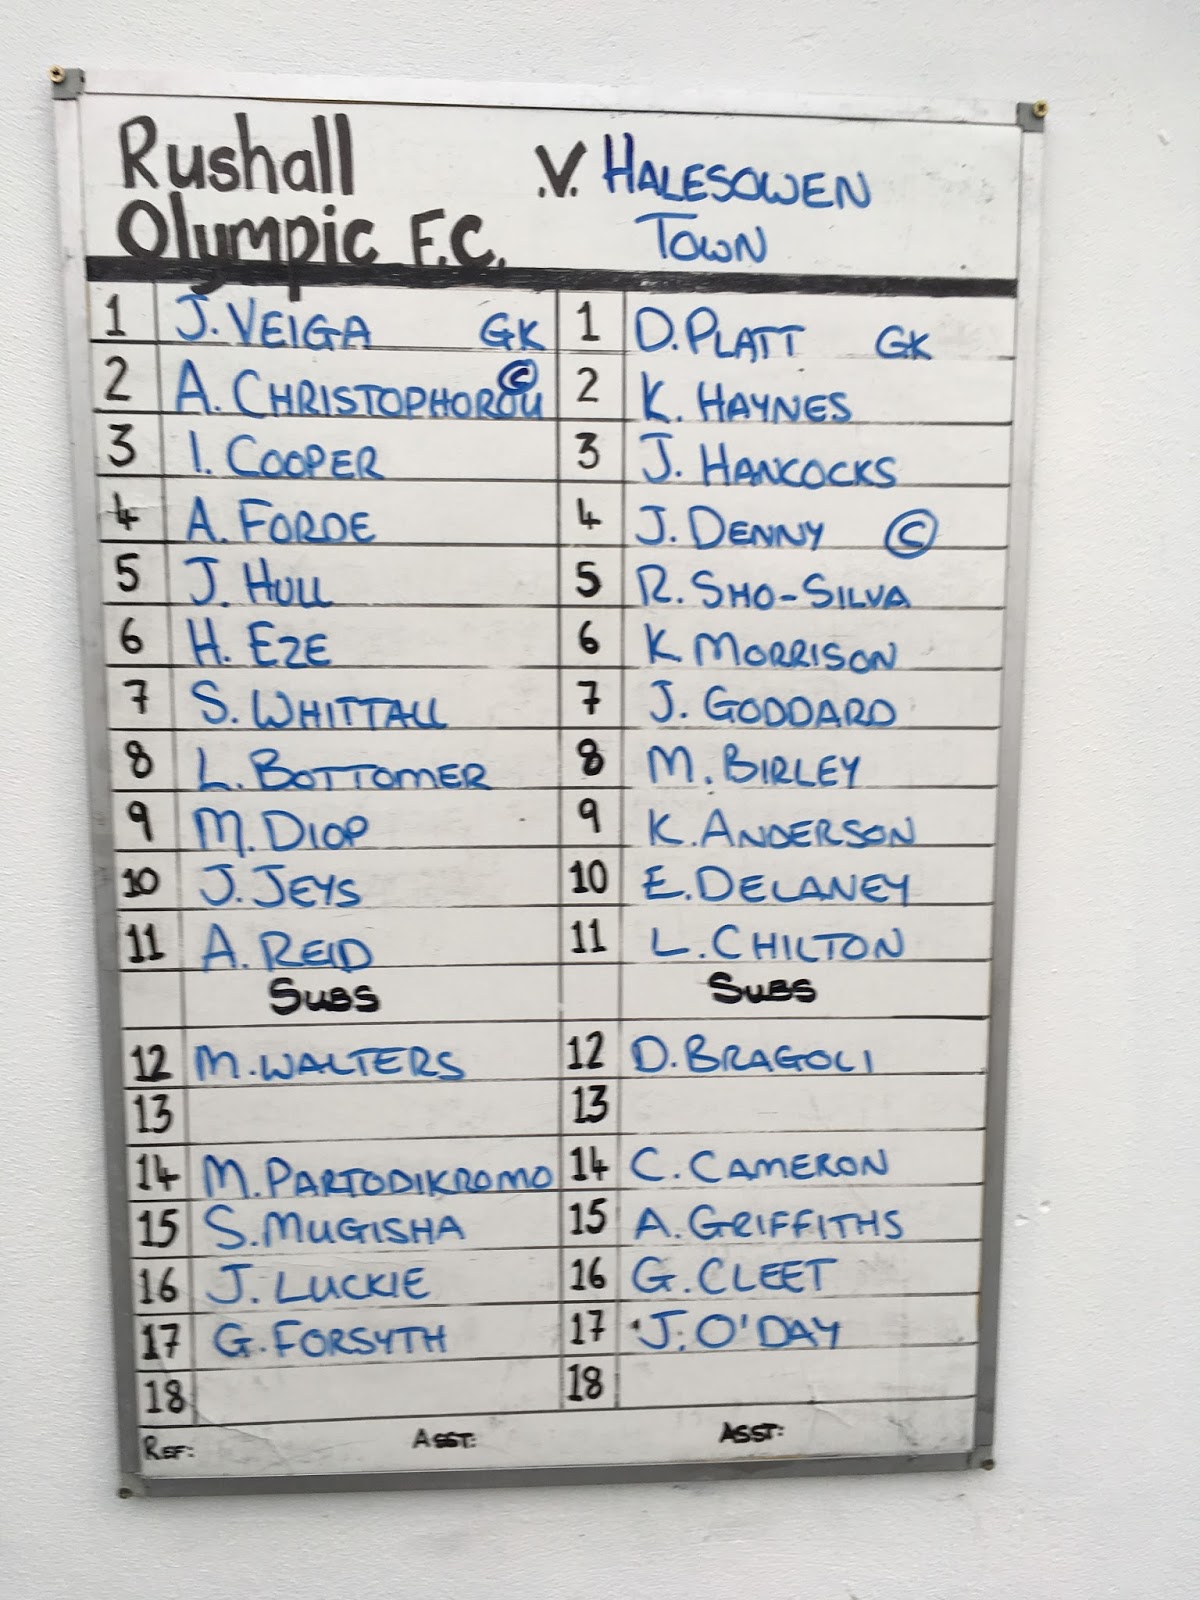 Rushall .V. HALESOWEN
Olympic F.C. TOWN
1 J. VEIGA GK 1 D. PLATT GK
2 A. CHRISTOPHOROU © 2 K. HAYNES
3 I. COOPER 3 J. HANCOCKS
4 A. FORDE 4 J. DENNY ©
5 J. HULL 5 R. SHO-SILVA
6 H. EZE 6 K MORRISON
7 S. WHITTALL 7 J. GODDARD
8 L. BOTTOMER 8 M. BIRLEY
9 M. DIOP 9 K. ANDERSON
10 J. JEYS 10 E. DELANEY
11 A. REID 11 L. CHILTON
SUBS SUBS
12 M. WALTERS 12 D. BRAGOLI
13 13
14 M. PARTODIKROMO 14 C. CAMERON
15 S. MUGISHA 15 A. GRIFFITHS
16 J. LUCKIE 16 G. CLEET
17 G. FORSYTH 17 J. O'DAY
18 18
REF: ASST: ASST: